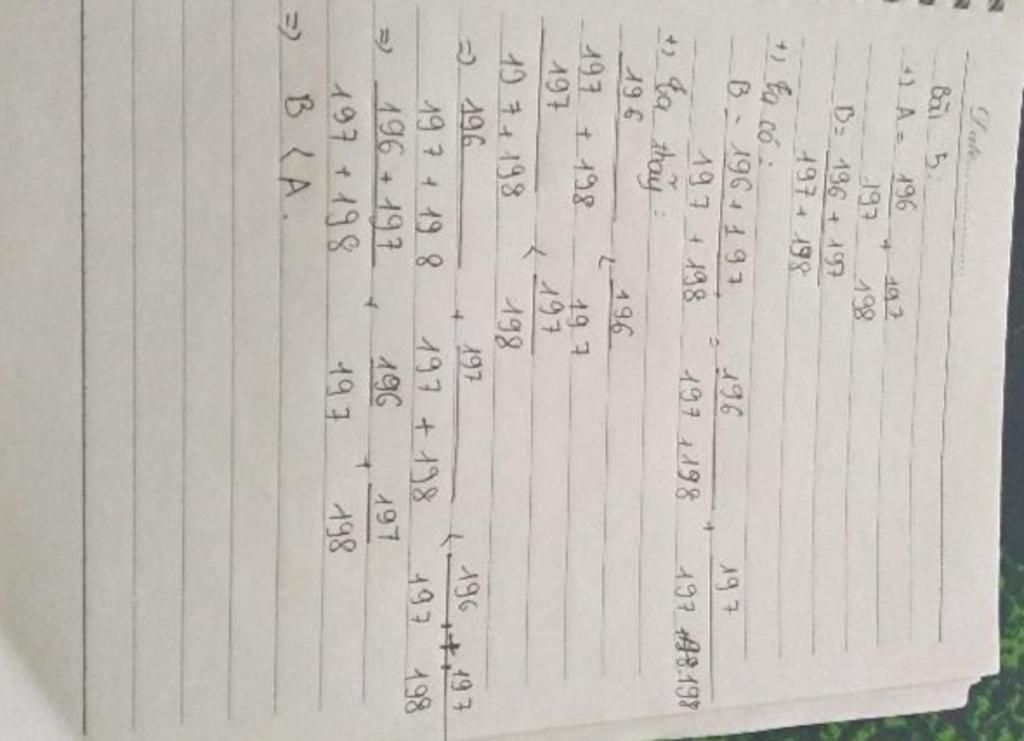 Date
Bài 5.
+) A = 196/197 + 197/198
B = 196 + 197/197 + 198
+) Ta có:
B = 196 + 197/197 + 198 = 196/197 + 198 + 197/197 198
+) Ta thấy:
196/197 + 198 < 196/197
197/197 + 198 < 197/198
=> 196/197 + 198 + 197/197 + 198 < 196/197 + 197/198
=> 196 + 197/197 + 198 + 196/197 + 197/198
=> B < A.